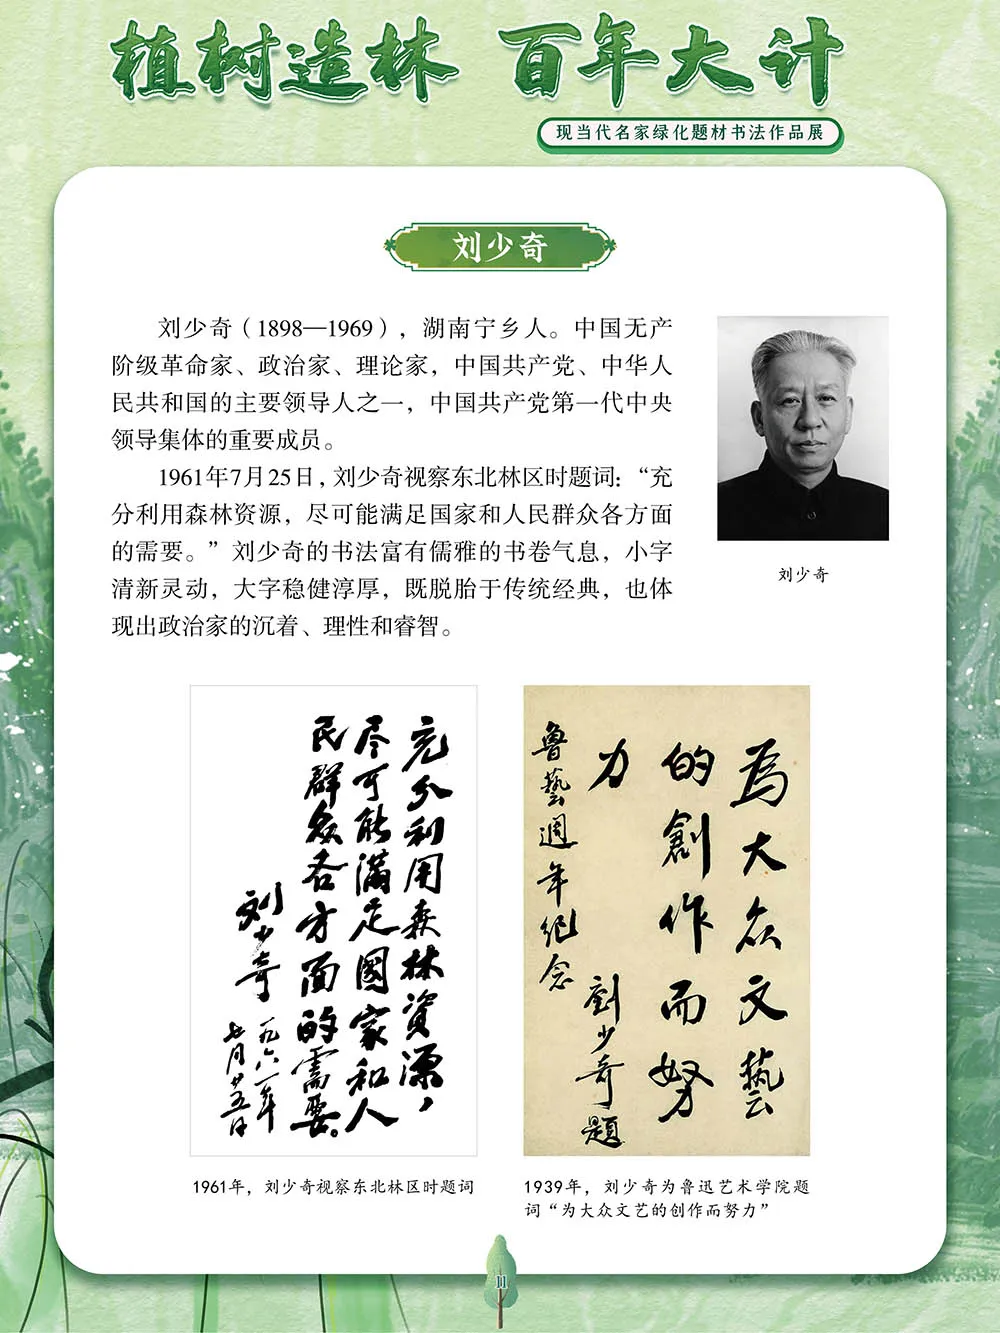 植树造林 百年大计
现当代名家绿化题材书法作品展
刘少奇
刘少奇（1898—1969），湖南宁乡人。中国无产
阶级革命家、政治家、理论家，中国共产党、中华人
民共和国的主要领导人之一，中国共产党第一代中央
领导集体的重要成员。
1961年7月25日，刘少奇视察东北林区时题词：“充
分利用森林资源，尽可能满足国家和人民群众各方面
的需要。”刘少奇的书法富有儒雅的书卷气息，小字
清新灵动，大字稳健淳厚，既脱胎于传统经典，也体
现出政治家的沉着、理性和睿智。
刘少奇
充分利用森林資源，
尽可能满足國家和人
民群众各方面的需要。
刘少奇
一九六一年
七月廿五日
為大众文藝
的創作而努
力
劉少奇題
魯藝週年纪念
1961年，刘少奇视察东北林区时题词
1939年，刘少奇为鲁迅艺术学院题
词“为大众文艺的创作而努力”
11